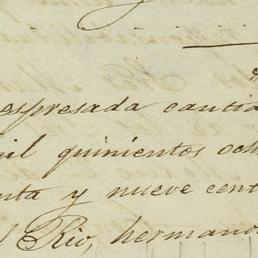 espresada cantid
mil quinientos och
nta y nueve cent
l Rio, hermano